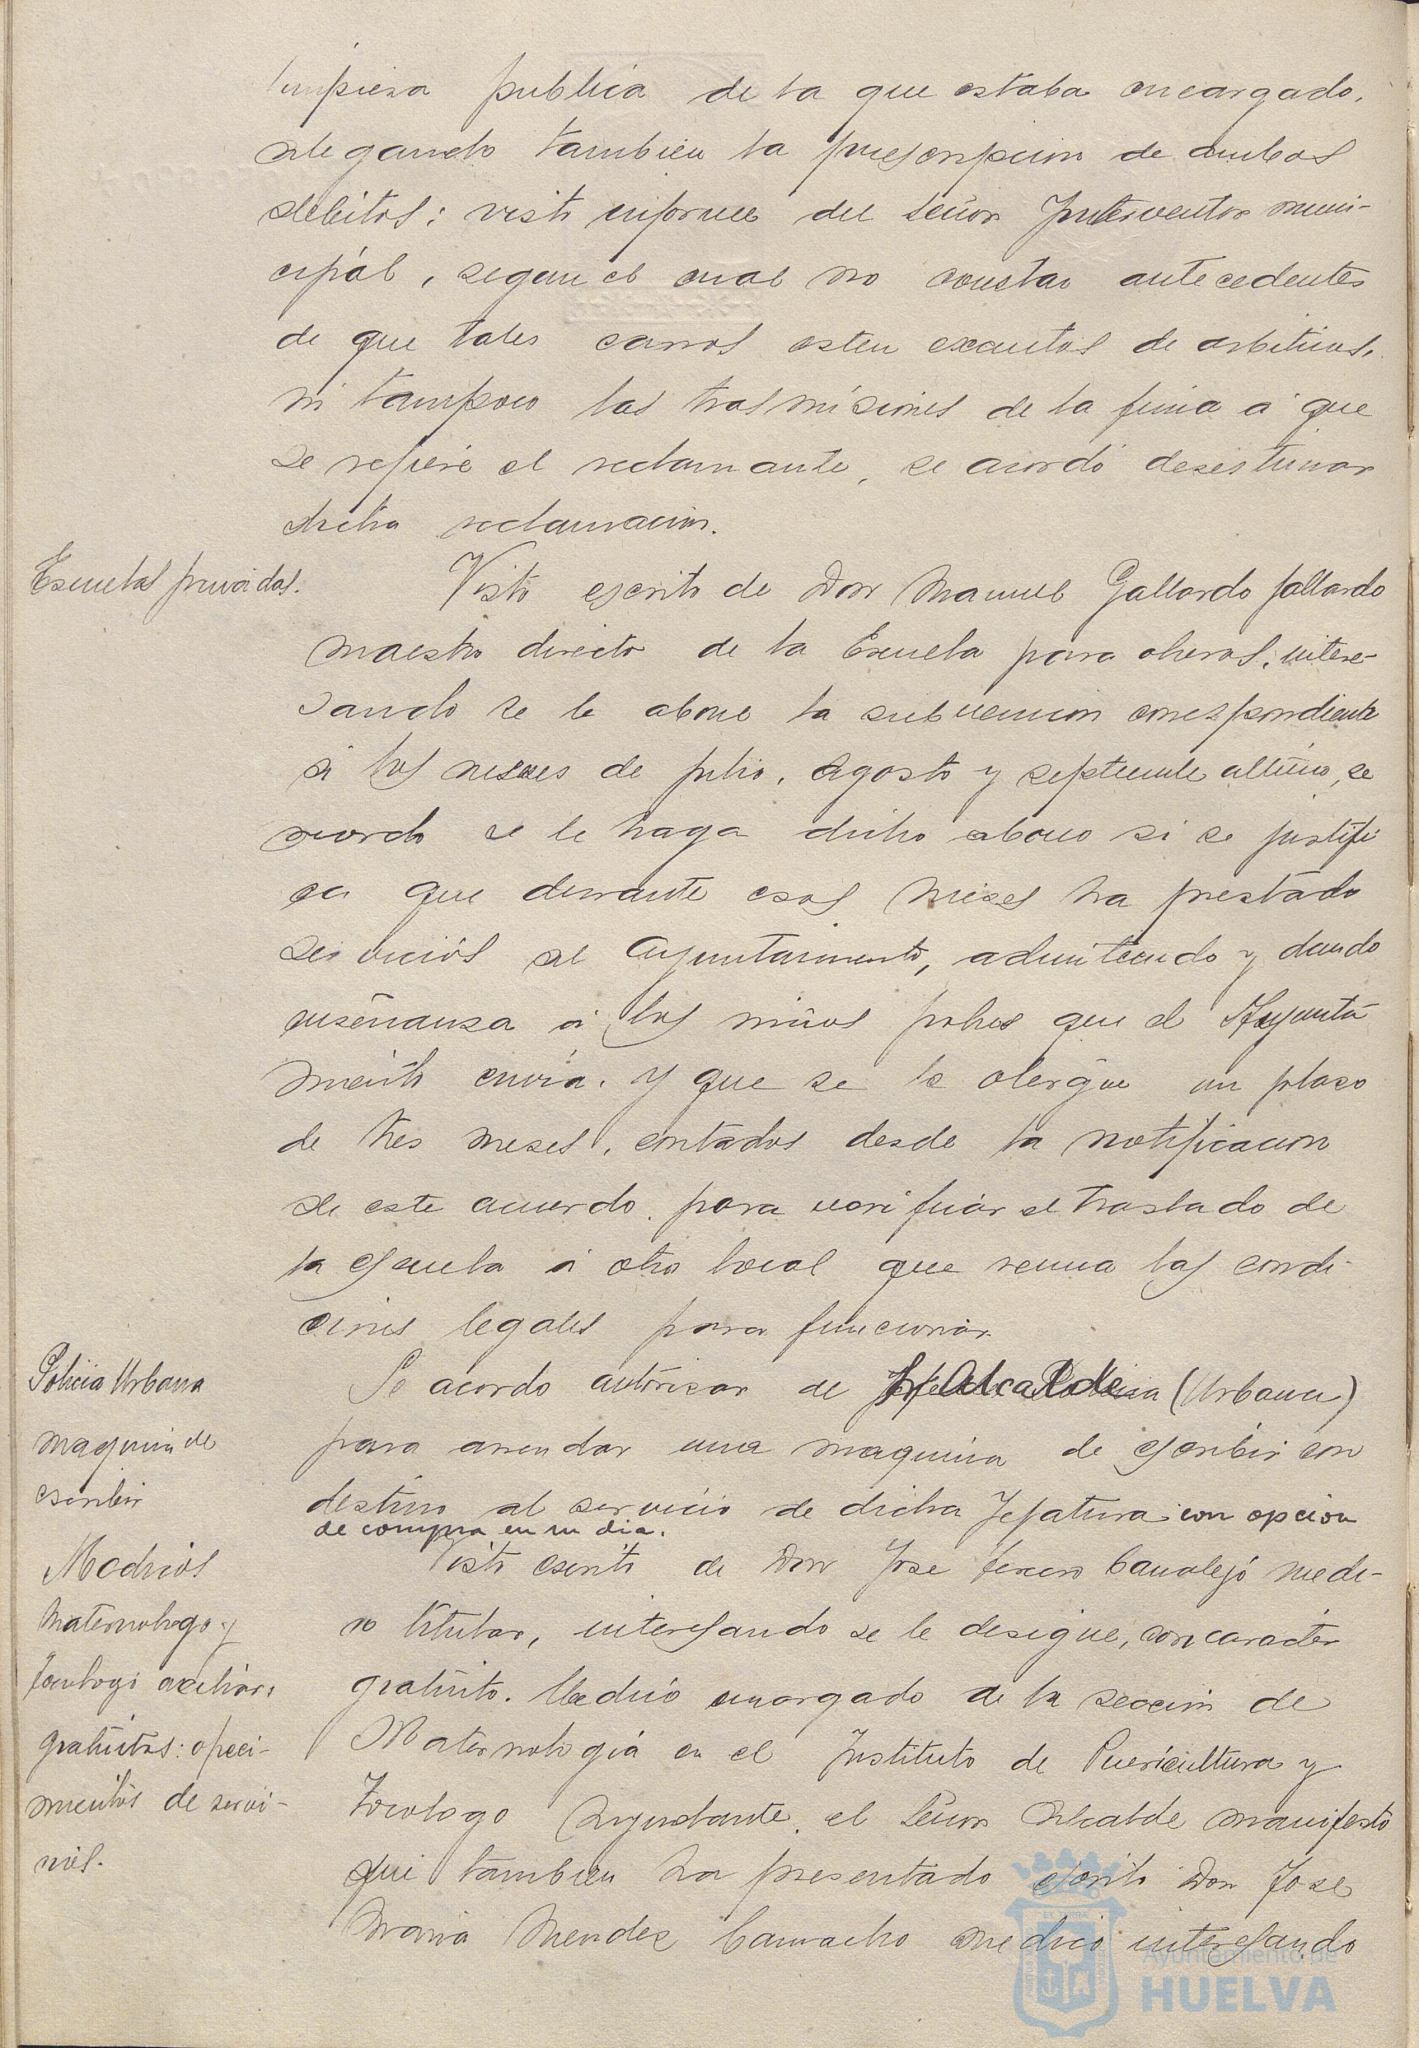 limpieza publica de la que estaba encargado,
alegando tambien la prescripcion de ambos
debitos; visto informe del Señor Interventor muni-
cipál, segun el cual no constan antecedentes
de que tales carros esten exentos de arbitrios,
ni tampoco las trasmisiones de la finca á que
se refiere el reclamante, se acordó desestimar
dicha reclamacion.
Escuelas privadas.
Visto escrito de Don Manuel Gallardo Gallardo
maestro director de la Escuela para obreros, intere-
sando se le abone la subvencion correspondiente
á los meses de julio, Agosto y septiembre ultimo, se
acordó se le haga dicho abono si se justifi
ca que durante esos meses ha prestado
servicios al Ayuntamiento, admitiendo y dando
enseñanza á los niños pobres que el Ayunta
miento envia. Y que se le otorgue un plazo
de tres meses, contados desde la notificacion
de este acuerdo, para verificar el traslado de
la escuela á otro local que reuna las condi-
ciones legales para funcionar.
Policia Urbana
maquina de
escribir
Se acordo autorizar de Sr Alcalde (Urbana)
para arrendar una maquina de escribir con
destino al servicio de dicha Jefatura con opcion
de compra en su dia.
Medicos
Maternologo y
Tocologo auxiliar,
gratuitos: ofreci-
mientos de servi-
cios.
Visto escrito de Don Jose Tercero Canalejó medi-
co titular, interesando se le designe, con caracter
gratuito, Medico encargado de la seccion de
Maternologiá en el Instituto de Puericultura y
Tocologo Ayudante, el Señor Alcalde manifestó
que tambien ha presentado escrito Don Jose
Maria Mendez Camacho medico interesando
Ayuntamiento de
HUELVA